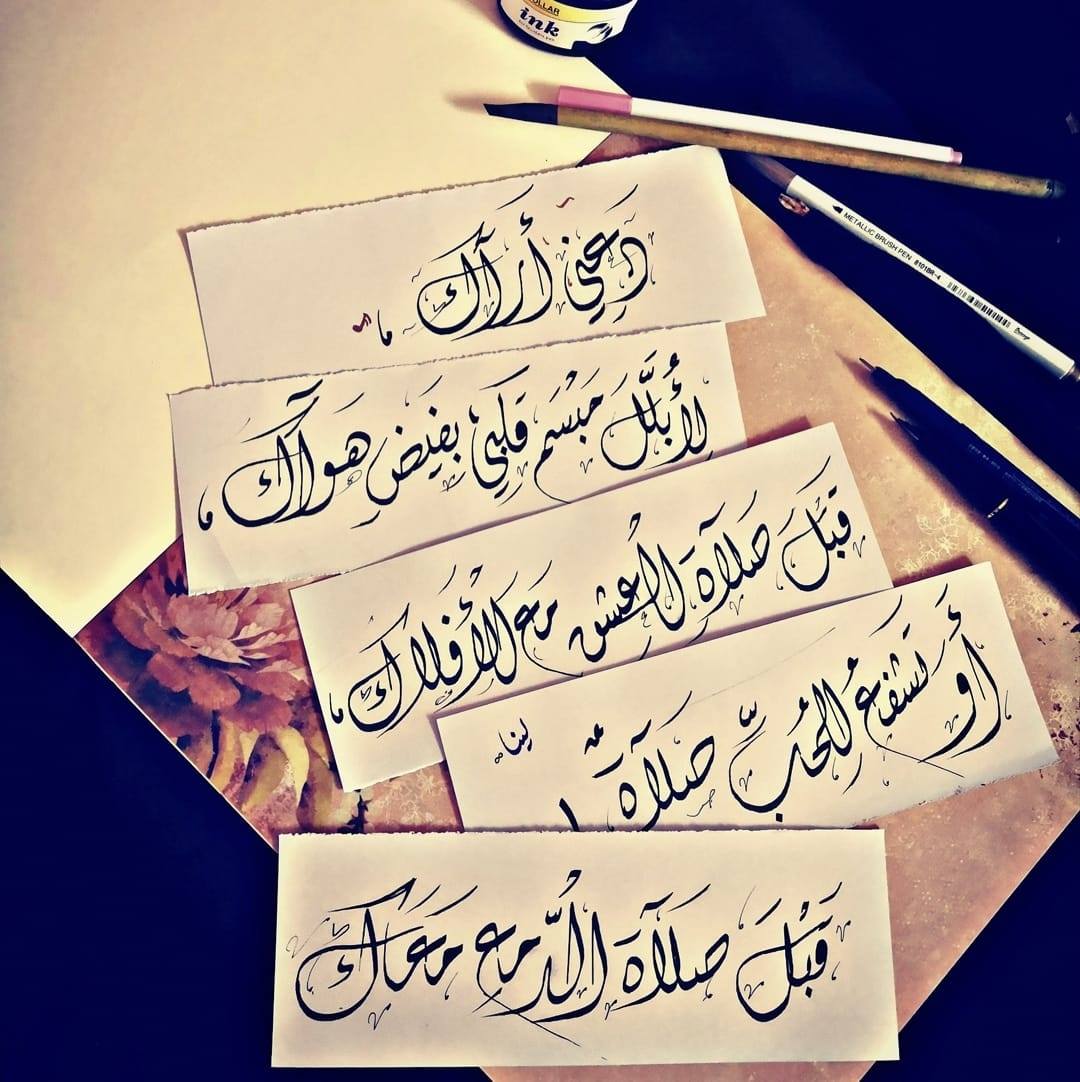 DOLLAR
ink
METALLIC BRUSH PEN 8101BR-4
دَعني أراكَ
لِأُبلِّلَ مَبْسمَ قلبي بفيَضِ هَواكَ
قبَلَ صَلاةَ العِشْق مَعَ الأفلاكَ
أَو تَشفعُ للُحبِّ صلاةٌ
لينا
قَبْلَ صلاةَ الدَّمعِ مَعَاكَ